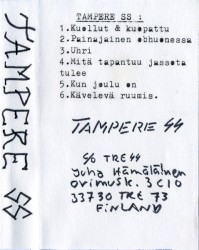 TAMPERE SS
TAMPERE SS :
1.Kuollut & kuopattu
2.Painajainen obhuonessa
3.Uhri
4.Mitä tapantuu jassota
tulee
5.Kun joulu on
6.Kävelevä ruumis.
TAMPERE SS
% TRE SS
Juha Hämäläinen
Orimusk. 3 C 10
33730 TRE 73
FINLAND